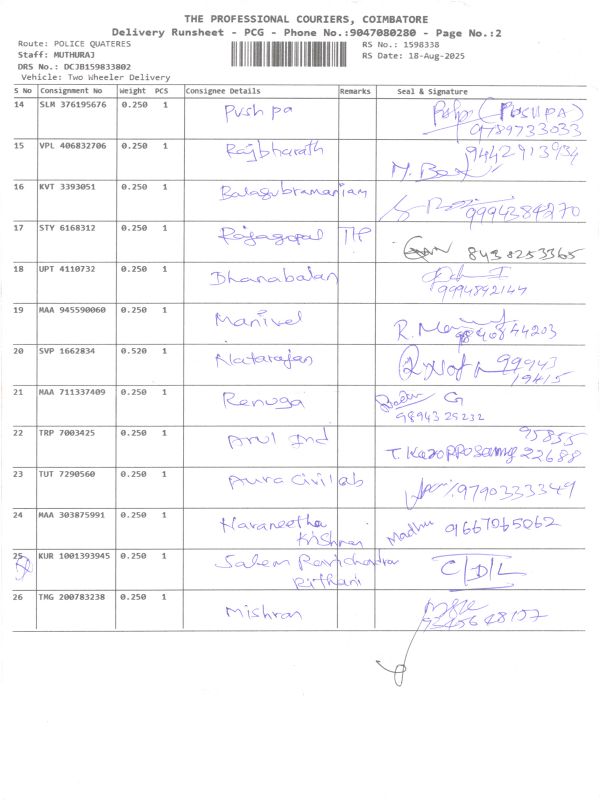 THE PROFESSIONAL COURIERS, COIMBATORE
Delivery Runsheet - PCG - Phone No.:9047080280 - Page No.:2
Route: POLICE QUATERES RS No.: 1598338
Staff: MUTHURAJ RS Date: 18-Aug-2025
DRS No.: DCJB159833802
Vehicle: Two Wheeler Delivery
S No Consignment No Weight PCS Consignee Details Remarks Seal & Signature
14 SLM 376195676 0.250 1 Pushpa (PUSHPA)
9789733033
15 VPL 406832706 0.250 1 Rajbharath 9442913934
16 KVT 3393051 0.250 1 Balasubramaniam 9994384270
17 STY 6168312 0.250 1 Rajagopal TTP 8438253365
18 UPT 4110732 0.250 1 Dhanabalan
9994892144
19 MAA 945590060 0.250 1 Manivel R.
9840844203
20 SVP 1662834 0.520 1 Natarajan 99943
19415
21 MAA 711337409 0.250 1 Renuga G
9894325232
22 TRP 7003425 0.250 1 Arul Ind 95855
T. Karopposamy 22688
23 TUT 7290560 0.250 1 Aura Civil ab 9790333349
24 MAA 303875991 0.250 1 Navaneetha Madhu 9667065062
Krishnan
25 KUR 1001393945 0.250 1 Salem Ravichandran C/D/L
Rithani
26 TMG 200783238 0.250 1 Mishran
9245648157